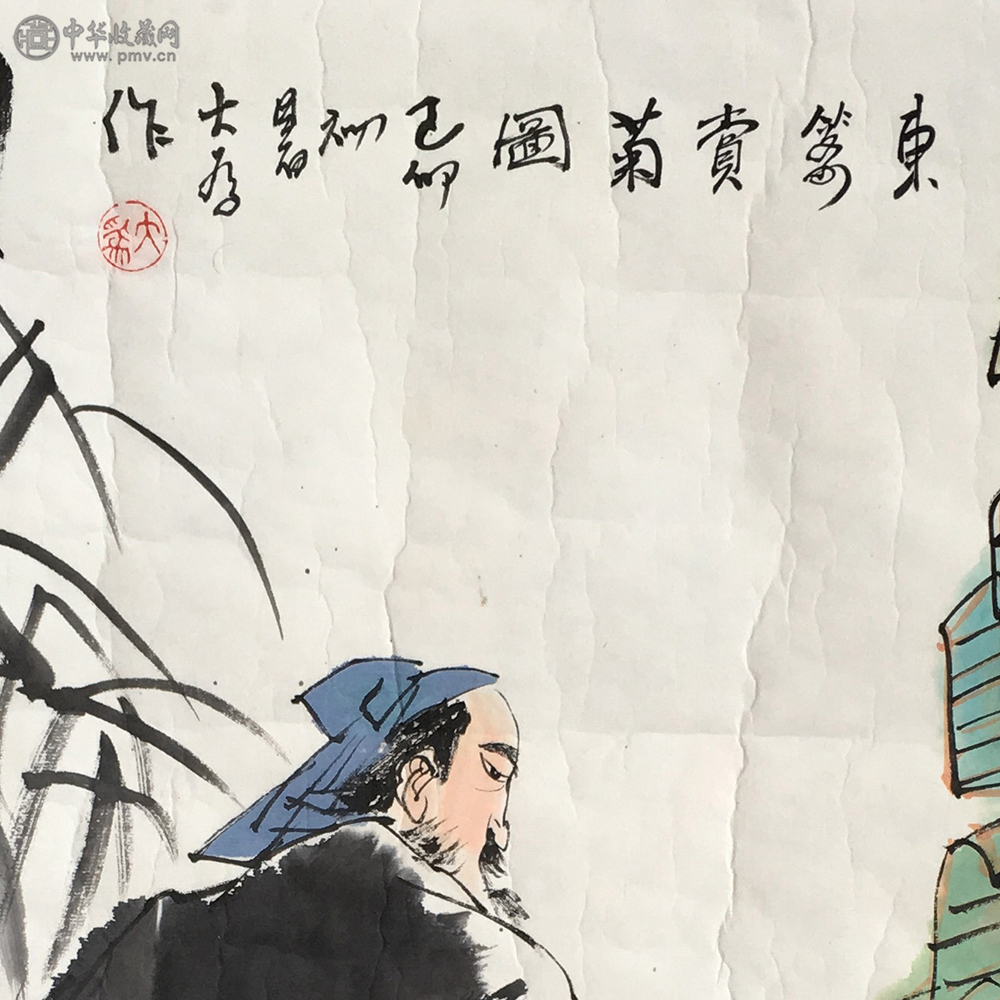 中华收藏网
www.pmv.cn
東籬賞菊圖 己卯初 大為作
大為